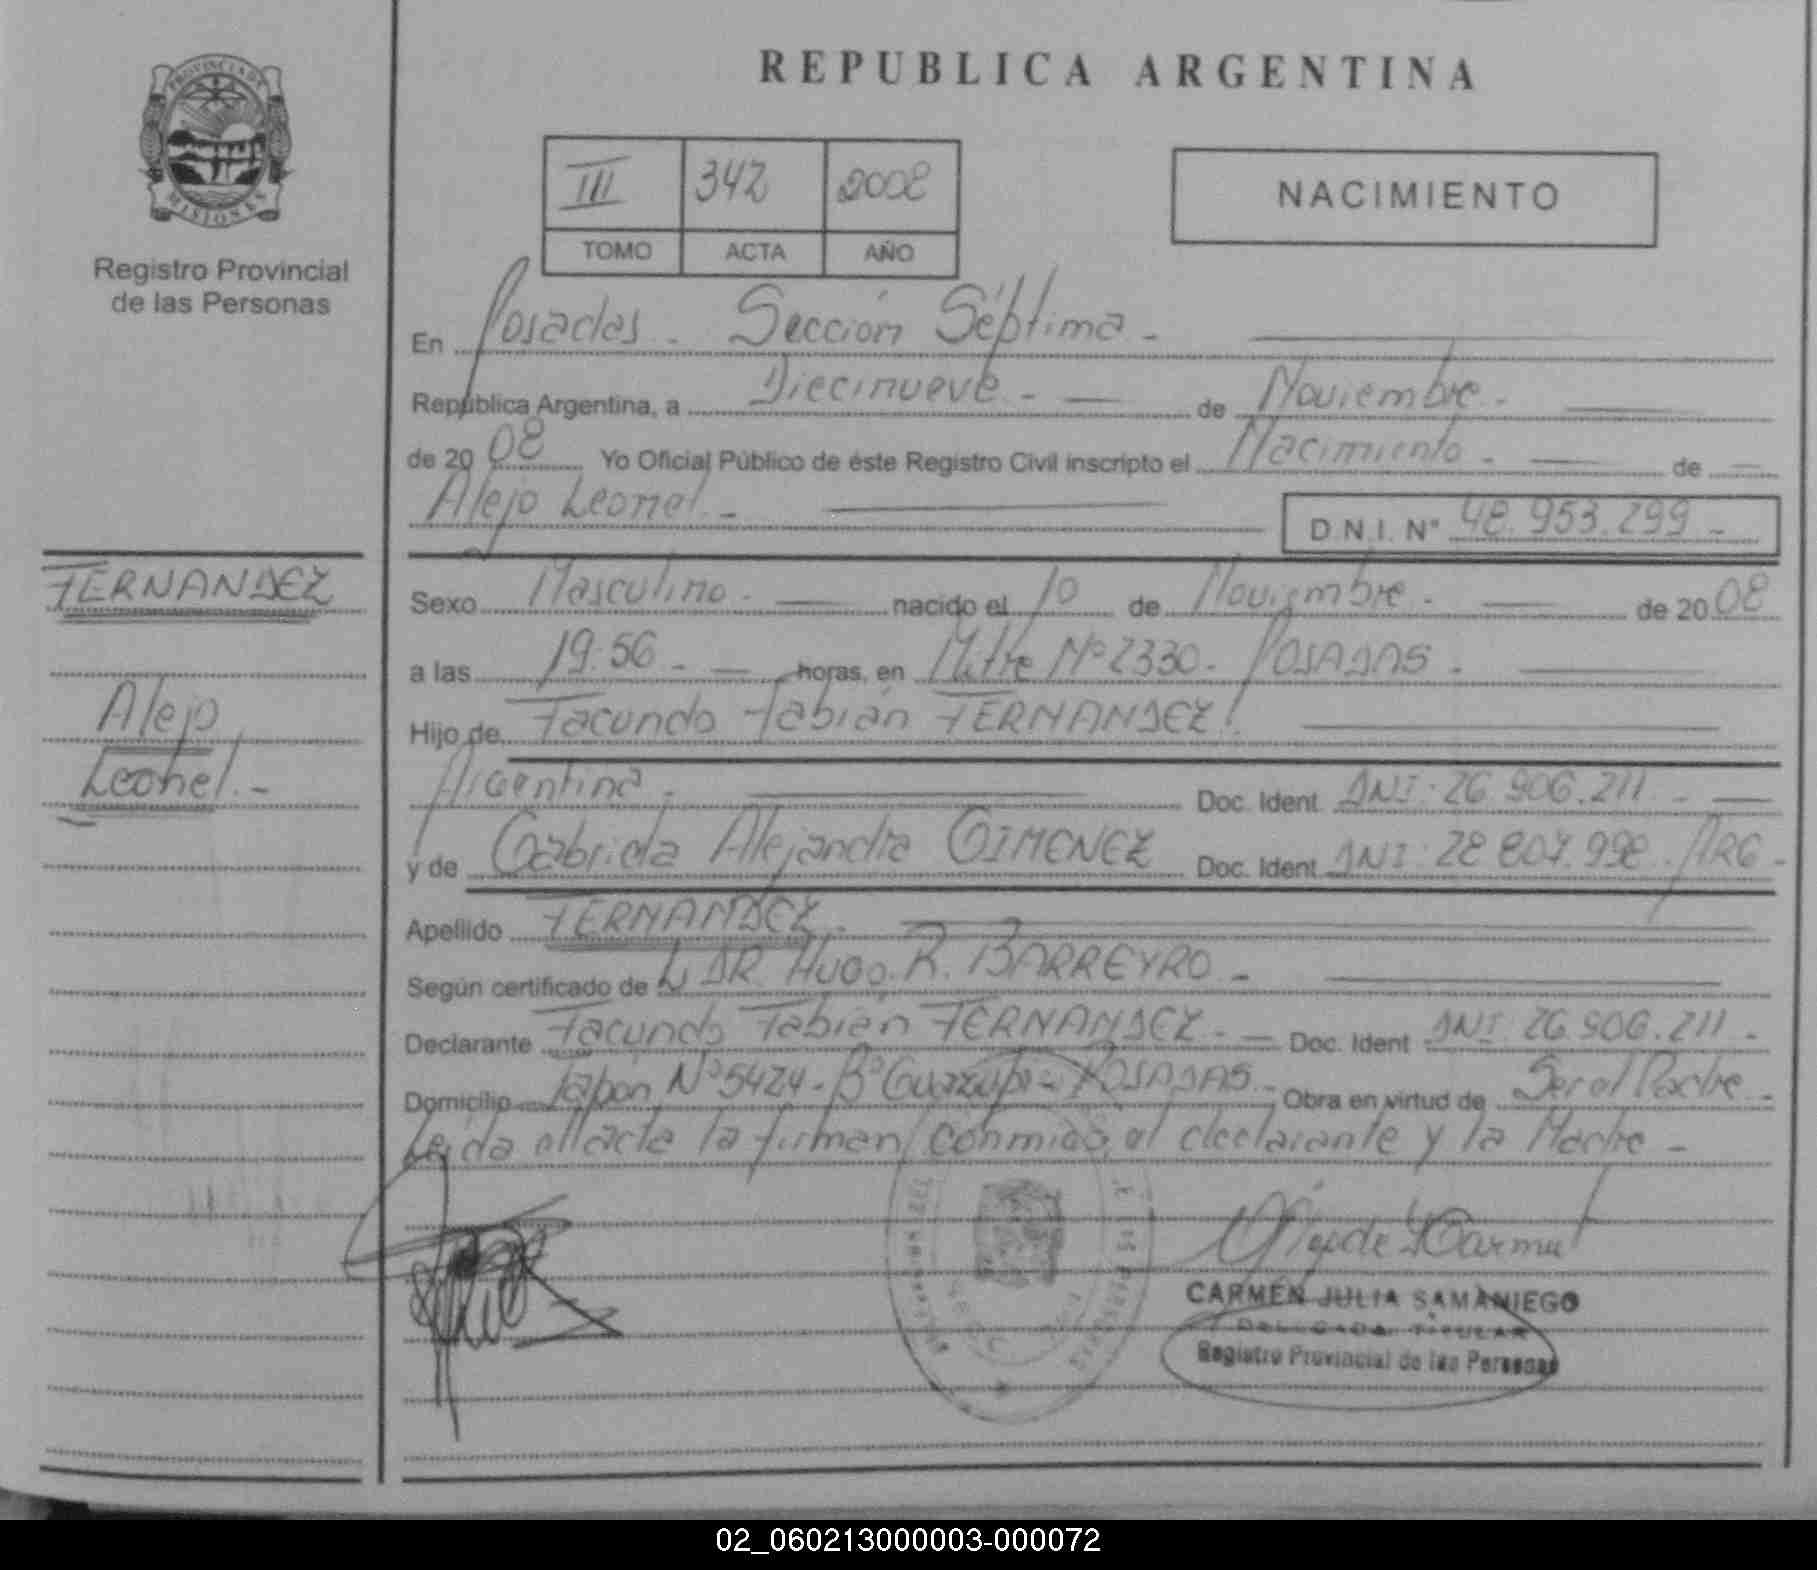 REPUBLICA ARGENTINA
PROVINCIA DE
MISIONES
Registro Provincial
de las Personas
III 342 2008
TOMO ACTA AÑO
NACIMIENTO
En Posadas - Sección Séptima -
República Argentina, a Diecinueve - de Noviembre -
de 2008 Yo Oficial Público de éste Registro Civil inscripto el Nacimiento - de
Alejo Leonel - D.N.I. N° 48.953.299 -
FERNANDEZ
Alejo
Leonel.-
Sexo Masculino - nacido el 10 de Noviembre - de 2008
a las 19:56 - horas, en Mitre Nº 2330 - POSADAS -
Hijo de Facundo Fabián FERNANDEZ
Argentina - Doc. Ident. DNI: 26.906.211 -
y de Gabriela Alejandra GIMENEZ Doc. Ident. DNI: 28.807.998. ARG -
Apellido FERNANDEZ -
Según certificado de DR. Hugo R. BARREYRO -
Declarante Facundo Fabián FERNANDEZ - Doc. Ident DNI: 26.906.211 -
Domicilio Japón Nº 5424 - Bº Guazupi - POSADAS - Obra en virtud de Ser el Padre -
Leída el acta la firman conmigo el declarante y la Madre -
CARMEN JULIA SAMANIEGO
DELEGADA TITULAR
Registro Provincial de las Personas
02_060213000003-000072